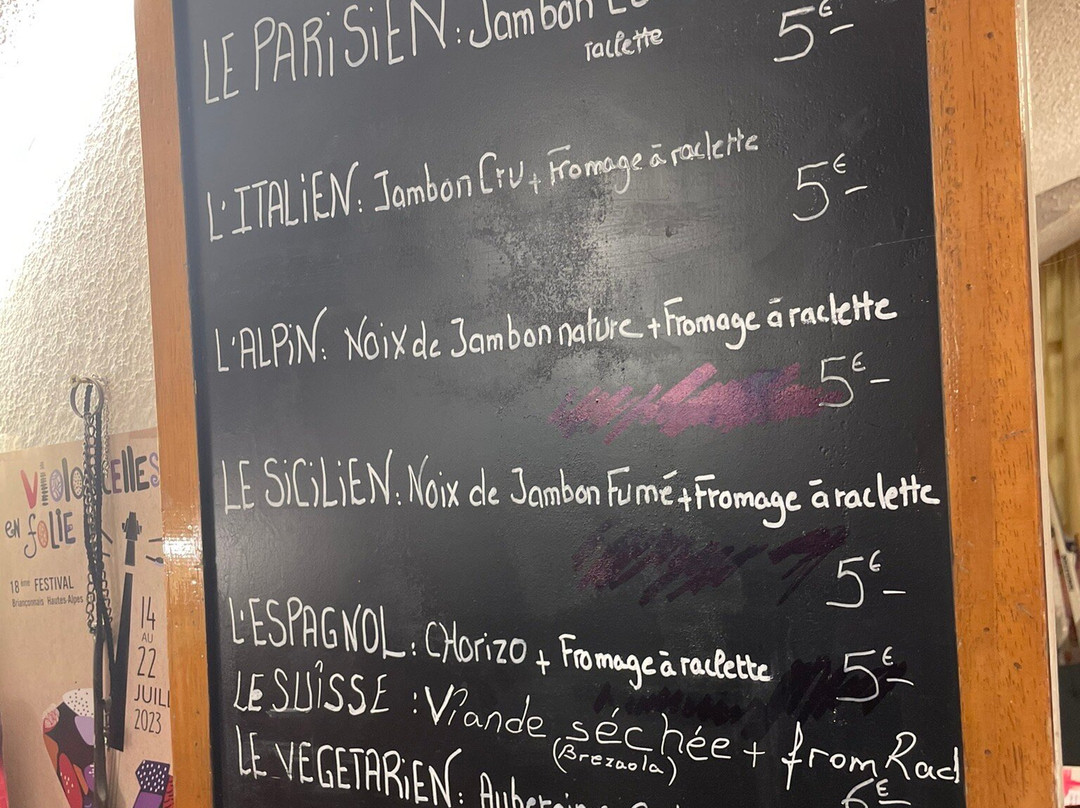 LE PARiSiEN: Jambon
raclette
5€-
L'ITALiEN: Jambon Cru + Fromage à raclette
5€-
L'ALPiN: Noix de Jambon nature + Fromage à raclette
5€-
LE SiCiLiEN: Noix de Jambon Fumé + Fromage à raclette
5€-
L'ESPAGNOL: CHorizo + Fromage à raclette
5€-
LE SUÎSSE: Viande séchée + from Rac
(Brezaola)
LE VEGETARiEN:
6€-
VIOLONCELLES
EN FOLIE
18ème FESTIVAL
Briançonnais Hautes-Alpes
14
AU
22
JUILL
2023